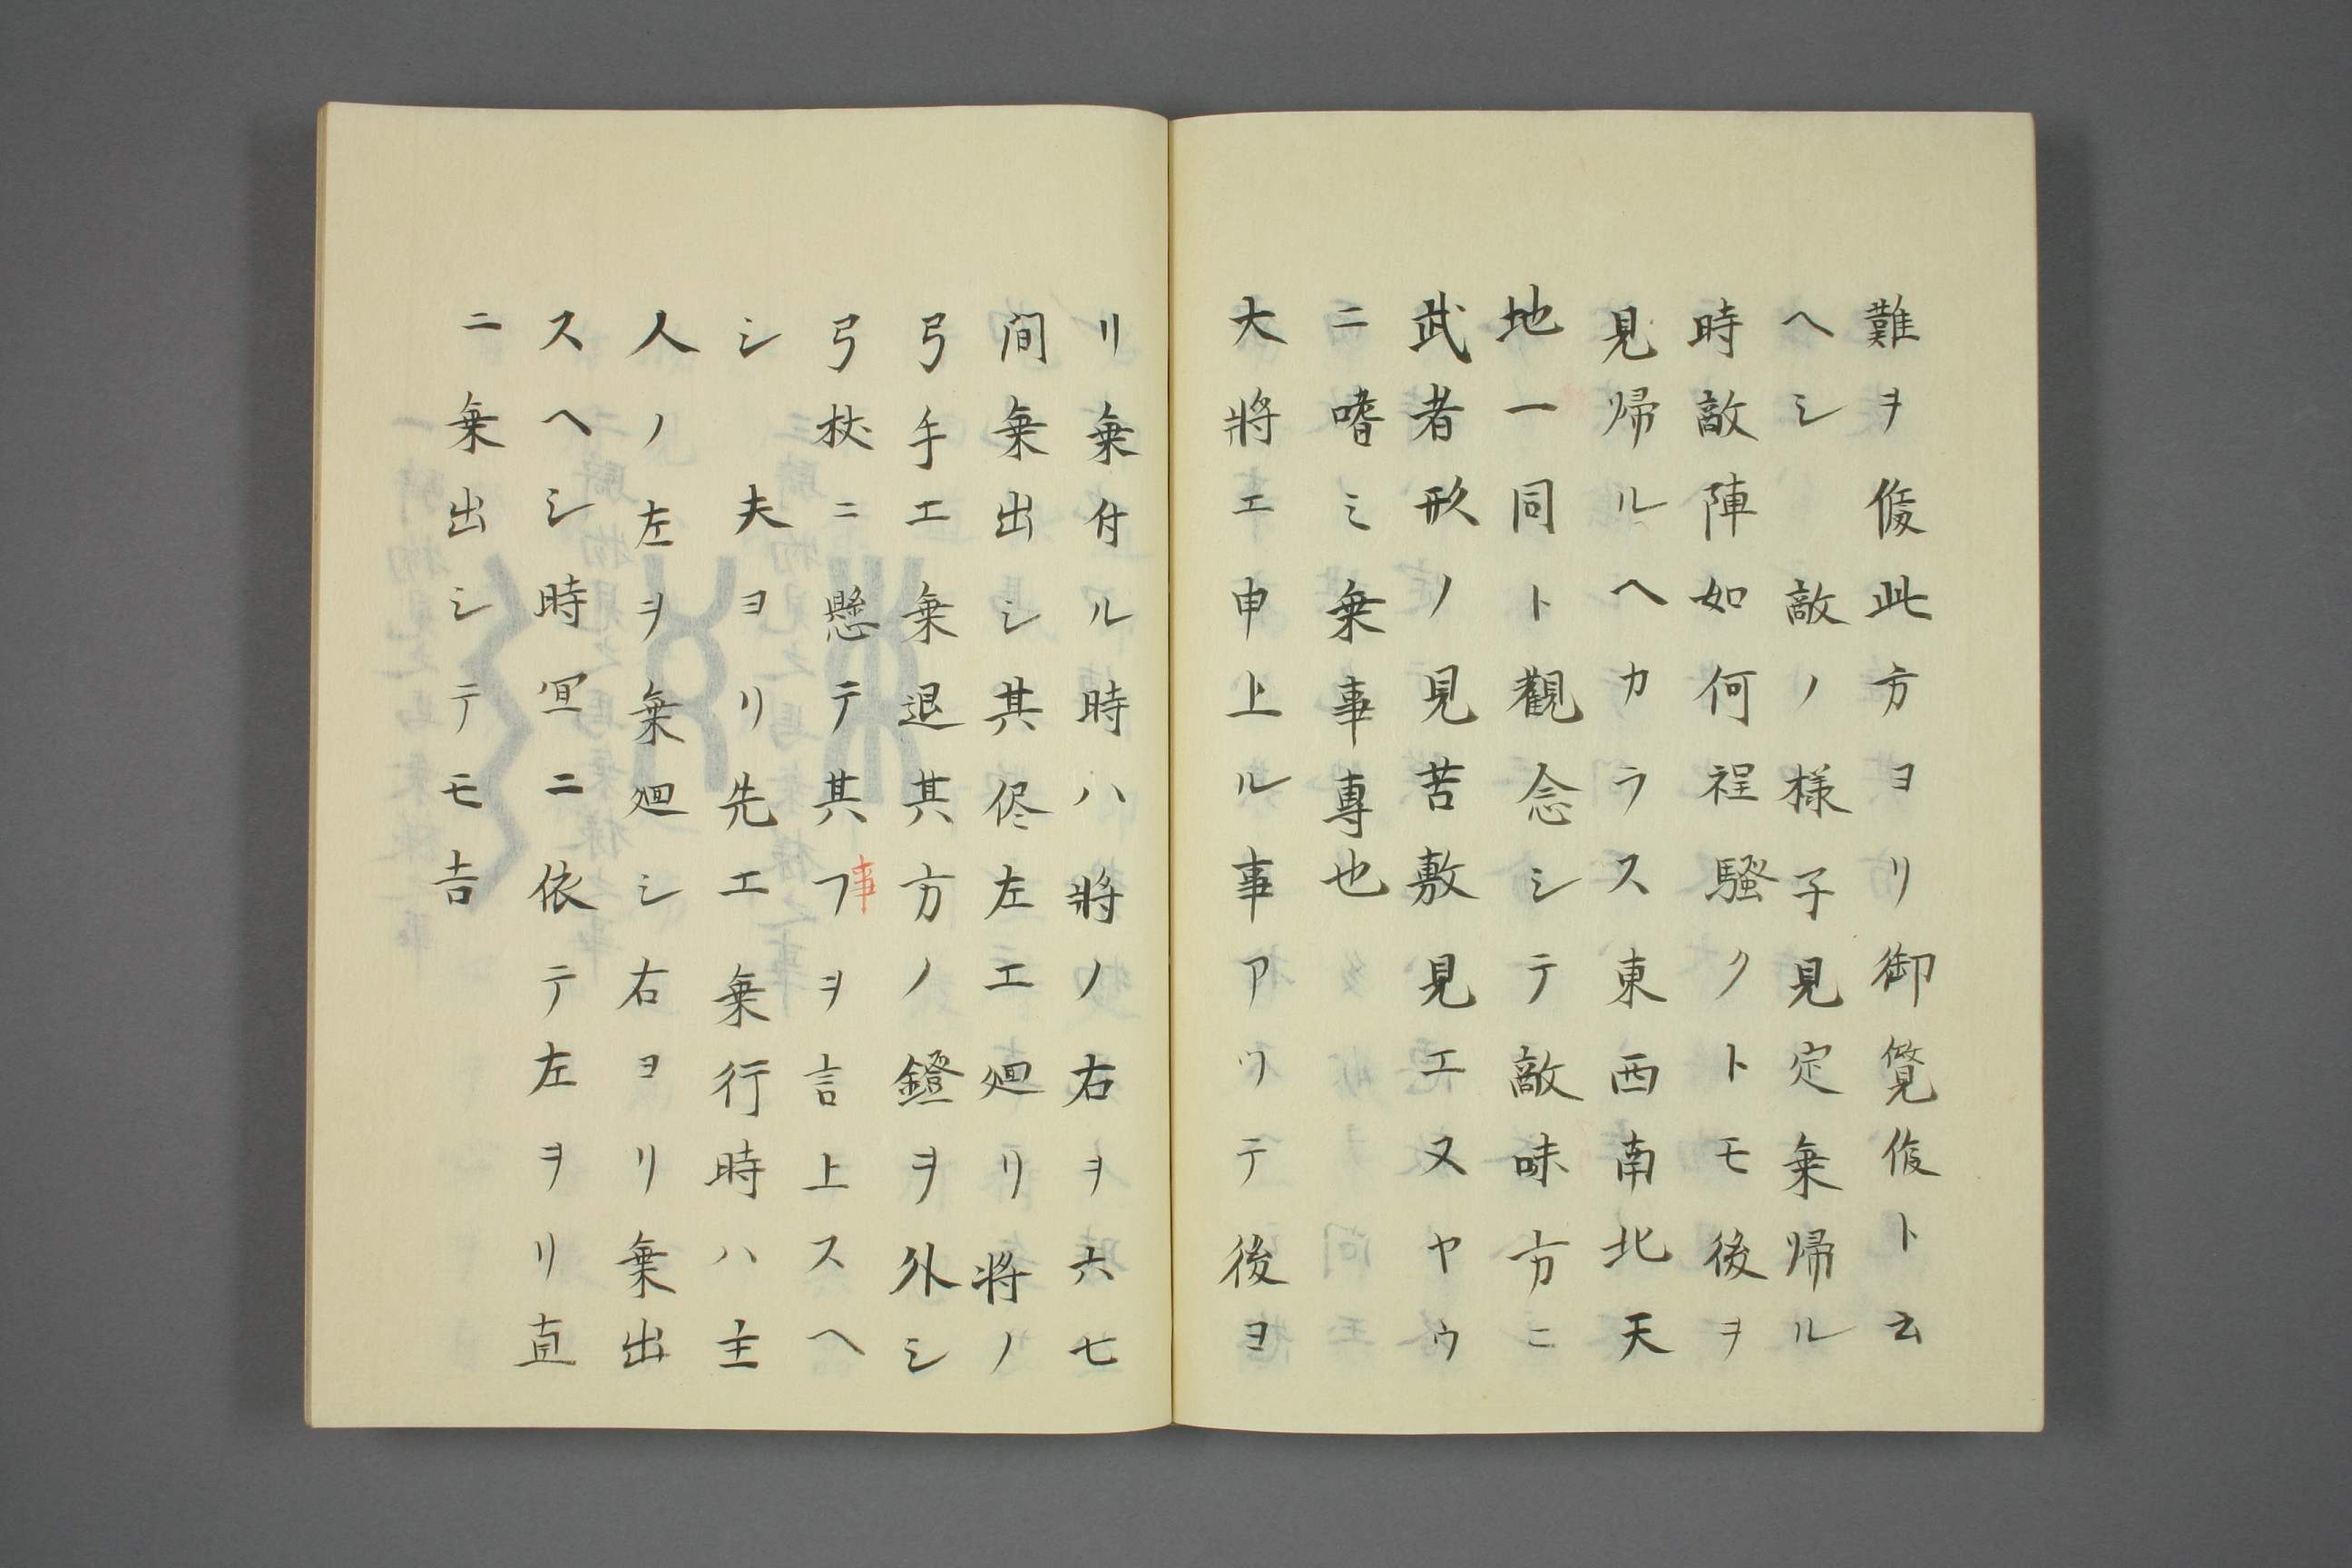 難ヲ候此方ヨリ御覧候ト云
ヘシ　敵ノ様子見定乗帰ル
時敵陣如何程騒クトモ後ヲ
見帰ルヘカラス東西南北天
地一同ト觀念シテ敵味方ニ
武者形ノ見苦敷見エヌヤウ
ニ嗜ミ乗事專也
大將エ申上ル事アツテ後ヨ
リ乗付ル時ハ將ノ右ヲ六七
间乗出シ其侭左エ廻リ将ノ
弓手エ乗退其方ノ鐙ヲ外シ
弓杖ニ懸テ其フヲ言上スヘ
事
シ　夫ヨリ先エ乗行時ハ主
人ノ左ヲ乗廻シ右ヨリ乗出
スヘシ時宜ニ依テ左ヲリ直
ニ乗出シテモ吉